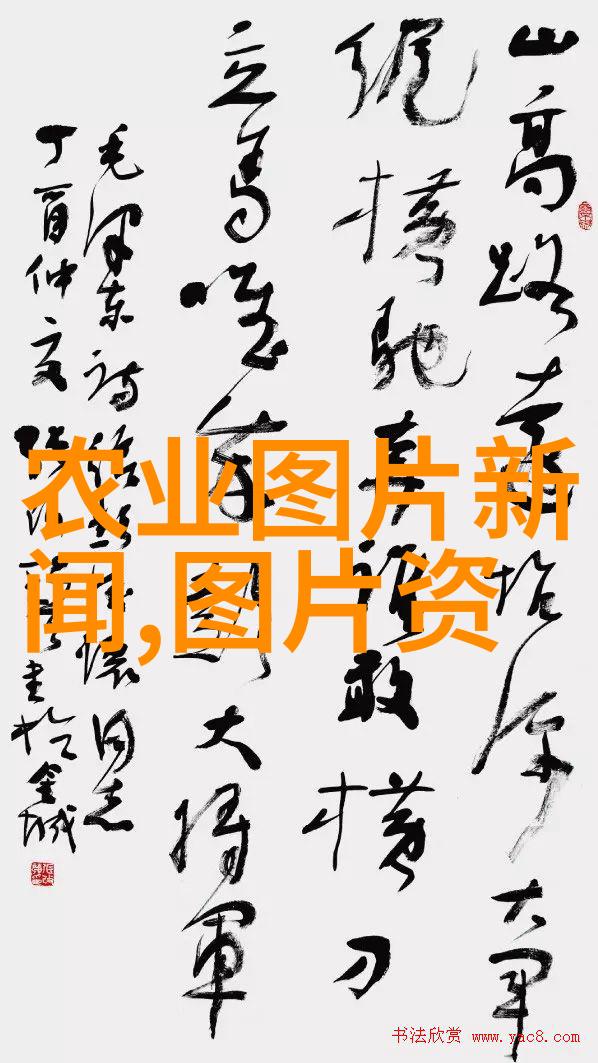 山高路遠坑深大军
纵横驰奔谁敢横刀
立马唯我彭大将軍
毛泽东诗给彭德怀同志
丁酉仲夏 书於金城
农业图片新
闻,图片资
书法欣赏 www.yac8.com